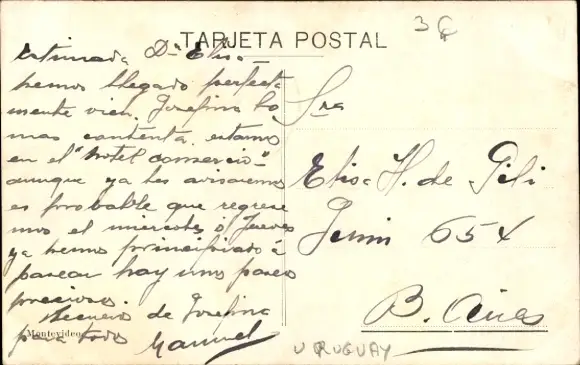 3
TARJETA POSTAL
Estimada Dª Elisa
hemos llegado perfecta
mente vien. Josefina lo
mas contenta. estamos
en el "hotel comercio"
aunque ya les avisaremos
es probable que regrese
mos el miercoles ó Jueves
ya hemos principiado á
pasear hay unos paseos
preciosos.
Recuerdos de Josefina
para todos Manuel
Montevideo
Sra
Elisa H. de Pili
Junin 654
B. Aires
URUGUAY